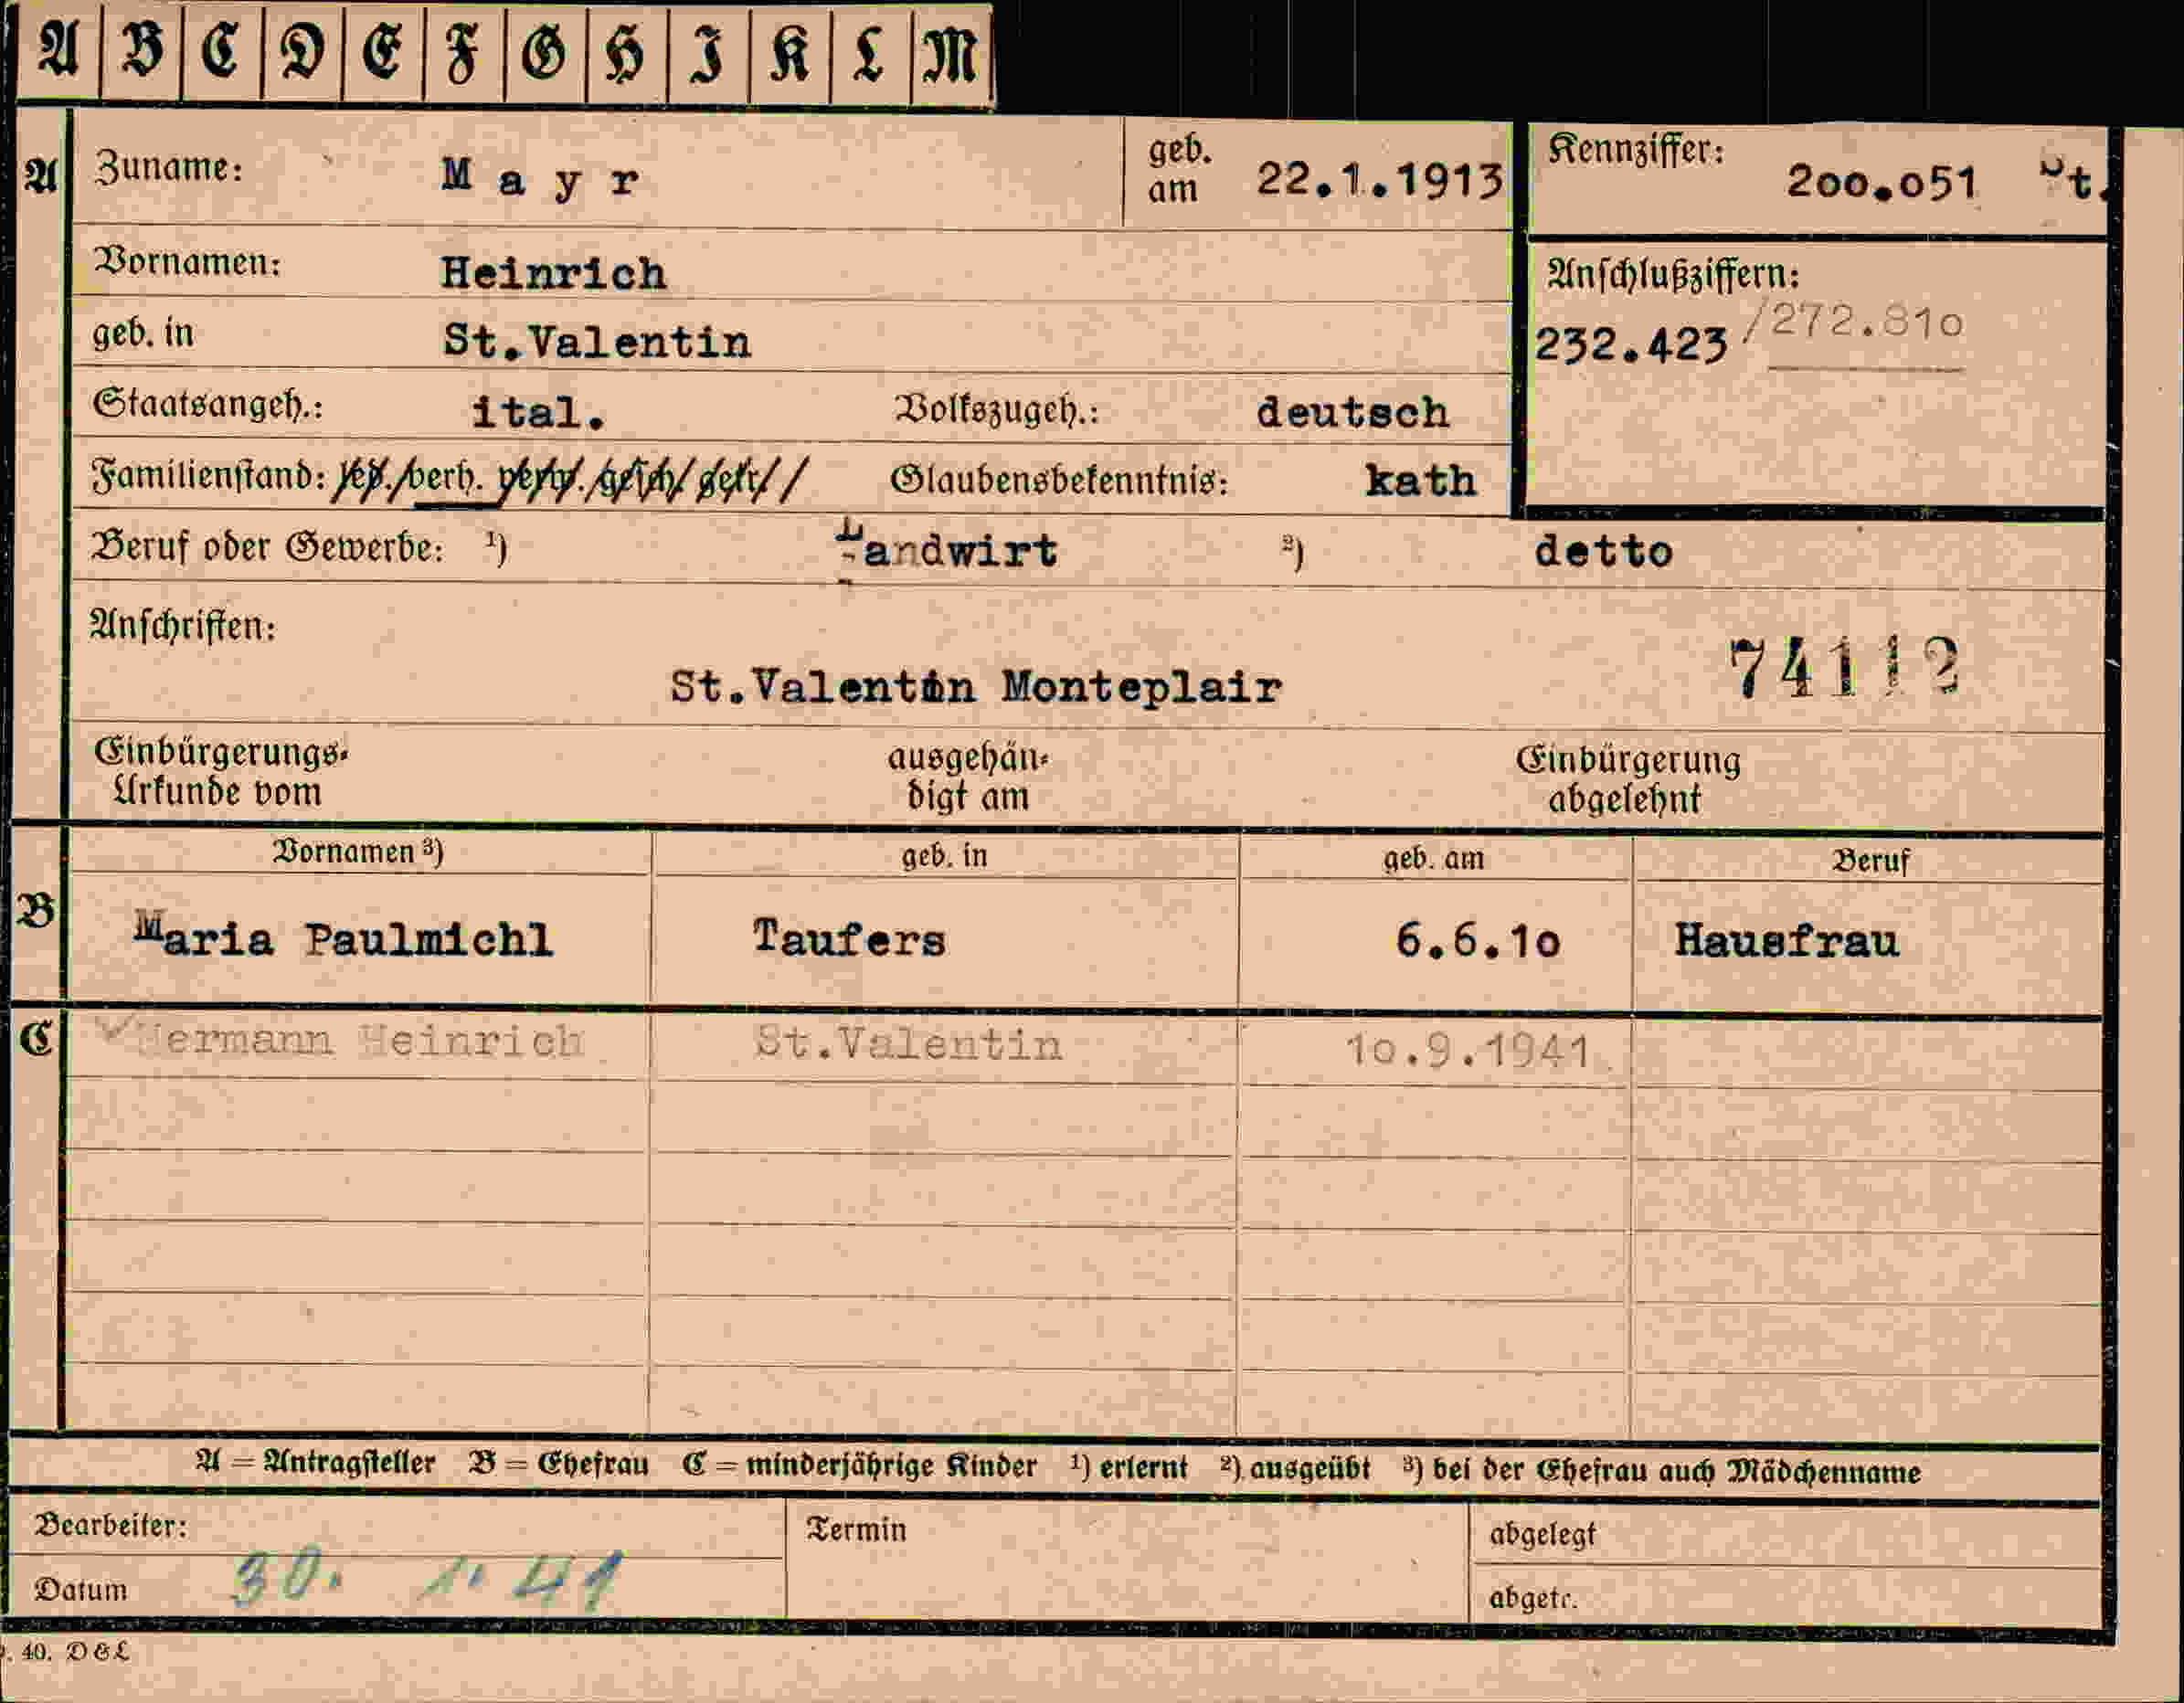 A B C D E F G H I K L M
A Zuname: Mayr geb. am 22.1.1913 Kennziffer: 2oo.o51
Vornamen: Heinrich Anschlußziffern:
geb. in St.Valentin 232.423 /272.81o
Staatsangeh.: ital. Volkszugeh.: deutsch
Familienstand: led./verh. verw./gesch/ getr// Glaubensbekenntnis: kath
Beruf oder Gewerbe: ¹) Landwirt ²) detto
Anschriften: 74112
St.Valentin Monteplair
Einbürgerungs- ausgehän- Einbürgerung
Urkunde vom digt am abgelehnt
Vornamen ³) geb. in geb. am Beruf
B Maria Paulmichl Taufers 6.6.1o Hausfrau
C Hermann Heinrich St.Valentin 1o.9.1941
A = Antragsteller B = Ehefrau C = minderjährige Kinder ¹) erlernt ²) ausgeübt ³) bei der Ehefrau auch Mädchenname
Bearbeiter: Termin abgelegt
Datum 30. 1. 41 abgetr.
. 40. D&L